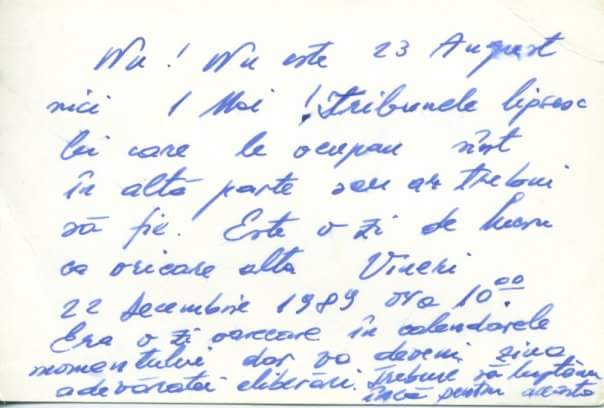 Nu! Nu este 23 August
nici 1 Mai! Tribunele lipsesc
cei care le ocupau sînt
în altă parte sau ar trebui
să fie. Este o zi de lucru
ca oricare alta Vineri
22 decembrie 1989 ora 10 00
Era o zi oarecare în calendarele
momentului dar va deveni ziua
adevăratei eliberări. Trebuie să luptăm
încă pentru aceasta